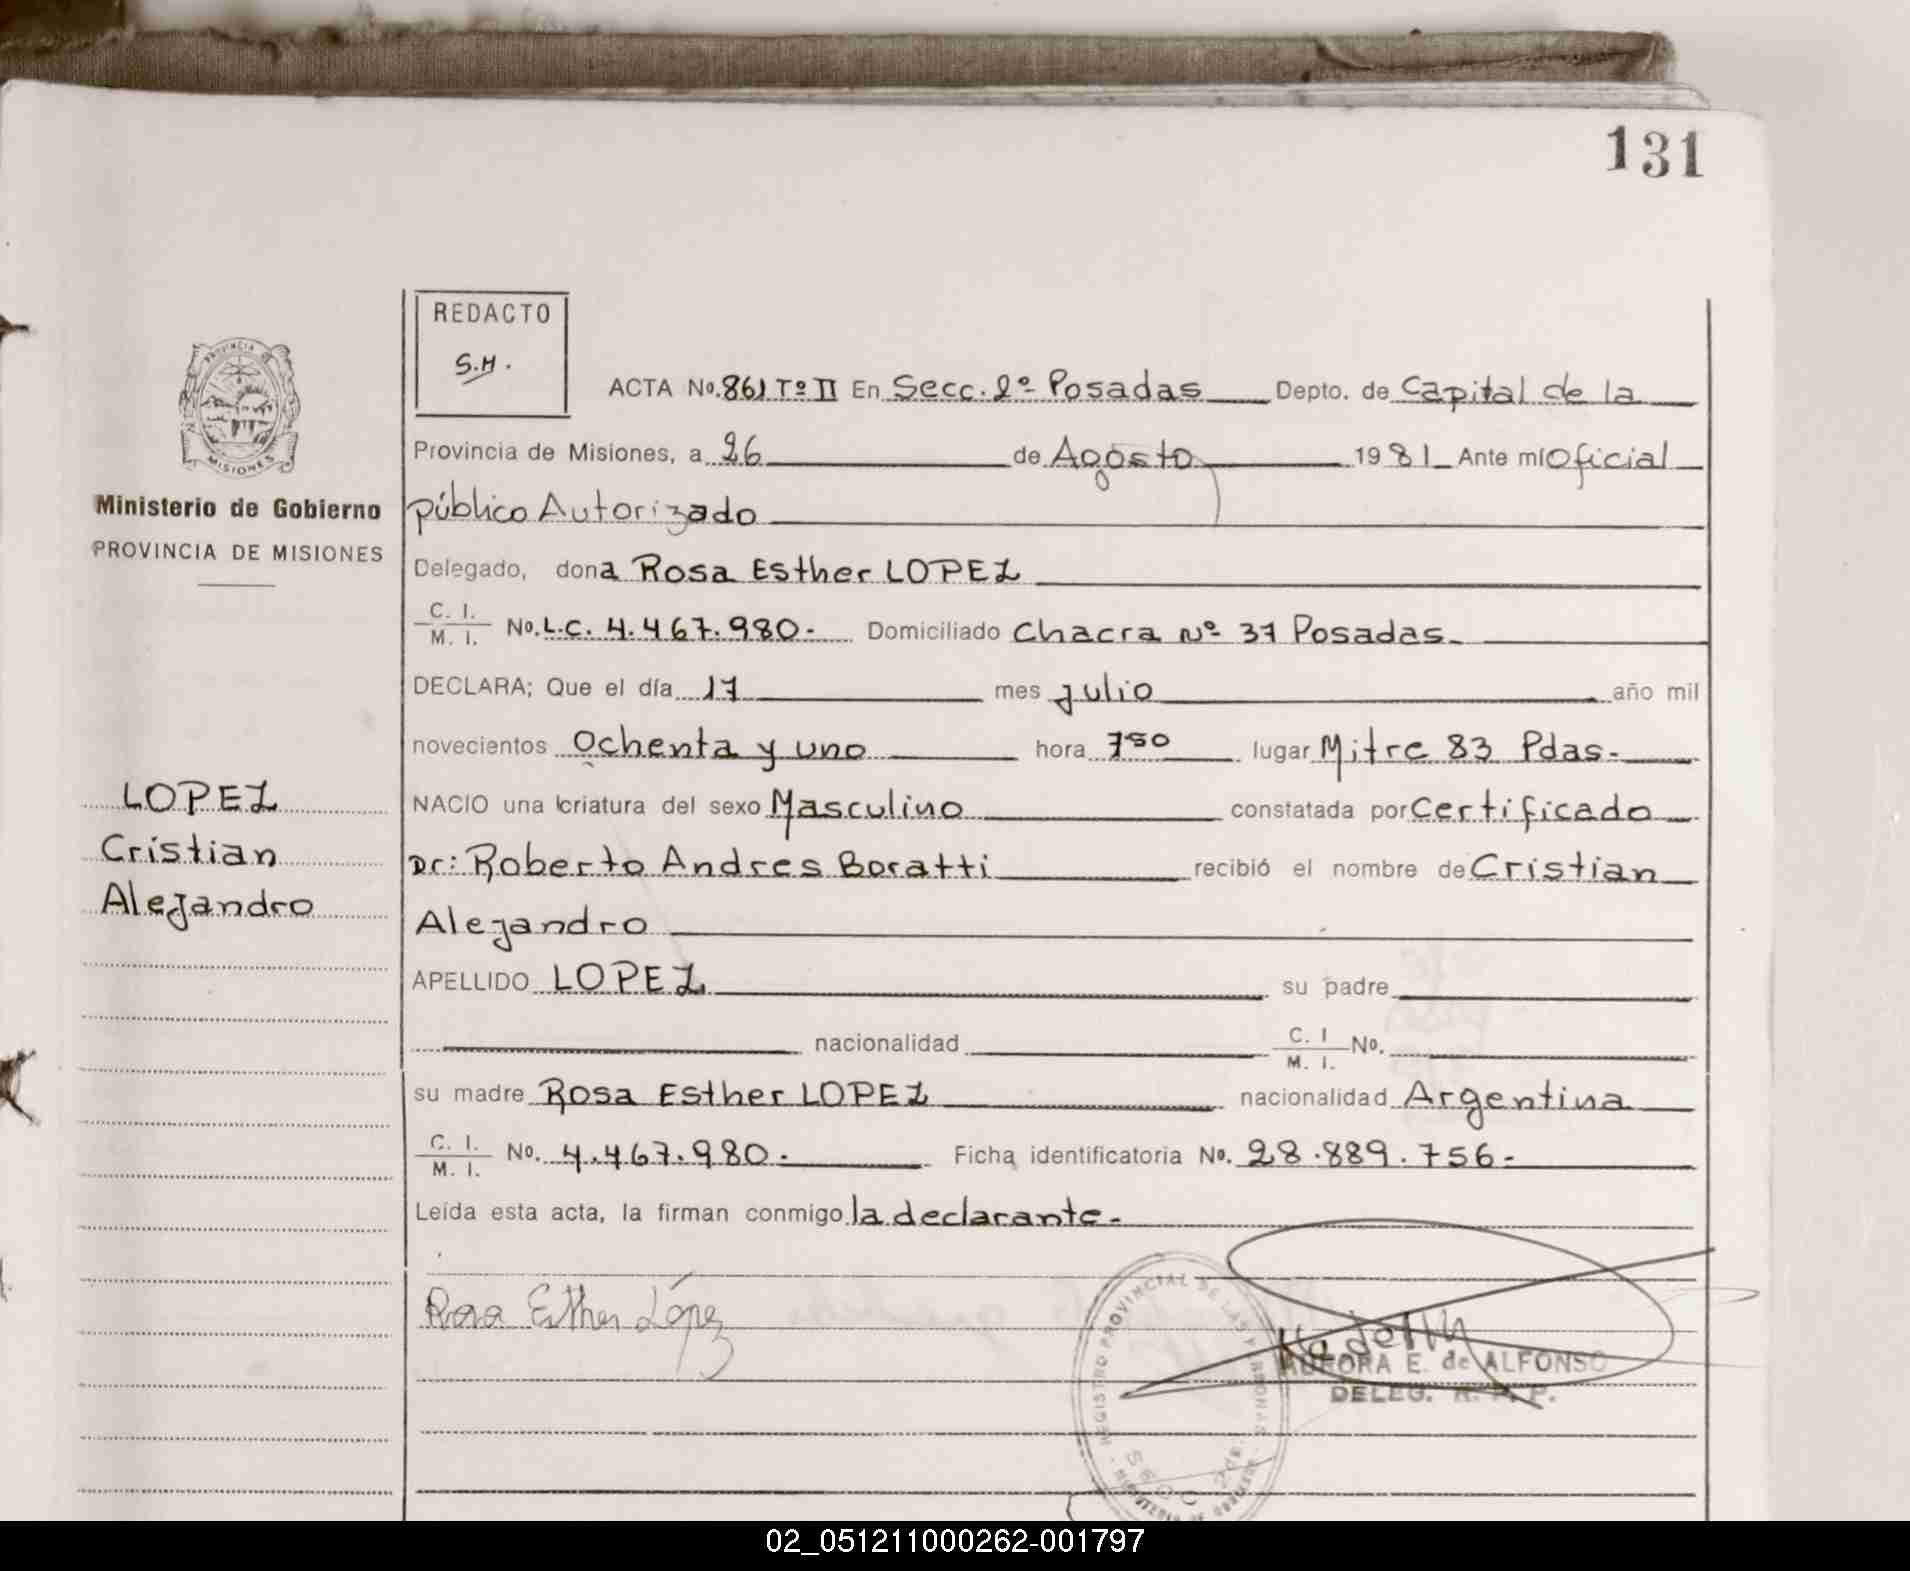 131
REDACTO
S.H.
ACTA No. 861 Tº II En Secc. 2º Posadas Depto. de Capital de la
Provincia de Misiones, a 26 de Agosto 1981 Ante mí Oficial
público Autorizado
Delegado, dona Rosa Esther LOPEZ
C. I.
M. I. No. L.C. 4.467.980.- Domiciliado Chacra Nº 37 Posadas.-
DECLARA; Que el día 17 mes julio año mil
novecientos Ochenta y uno hora 7⁵⁰ lugar Mitre 83 Pdas.-
NACIO una criatura del sexo Masculino constatada por Certificado
Dr: Roberto Andres Boratti recibió el nombre de Cristian
Alejandro
APELLIDO LOPEZ su padre
nacionalidad C. I
M. I. No.
su madre Rosa Esther LOPEZ nacionalidad Argentina
C. I.
M. I. No. 4.467.980.- Ficha identificatoria No. 28.889.756.-
Leída esta acta, la firman conmigo la declarante.-
Rosa Esther López
AURORA E. de ALFONSO
DELEG. R. P. P.
REGISTRO PROVINCIAL DE LAS PERSONAS
PROVINCIA DE
MISIONES
Ministerio de Gobierno
PROVINCIA DE MISIONES
LOPEZ
Cristian
Alejandro
02_051211000262-001797